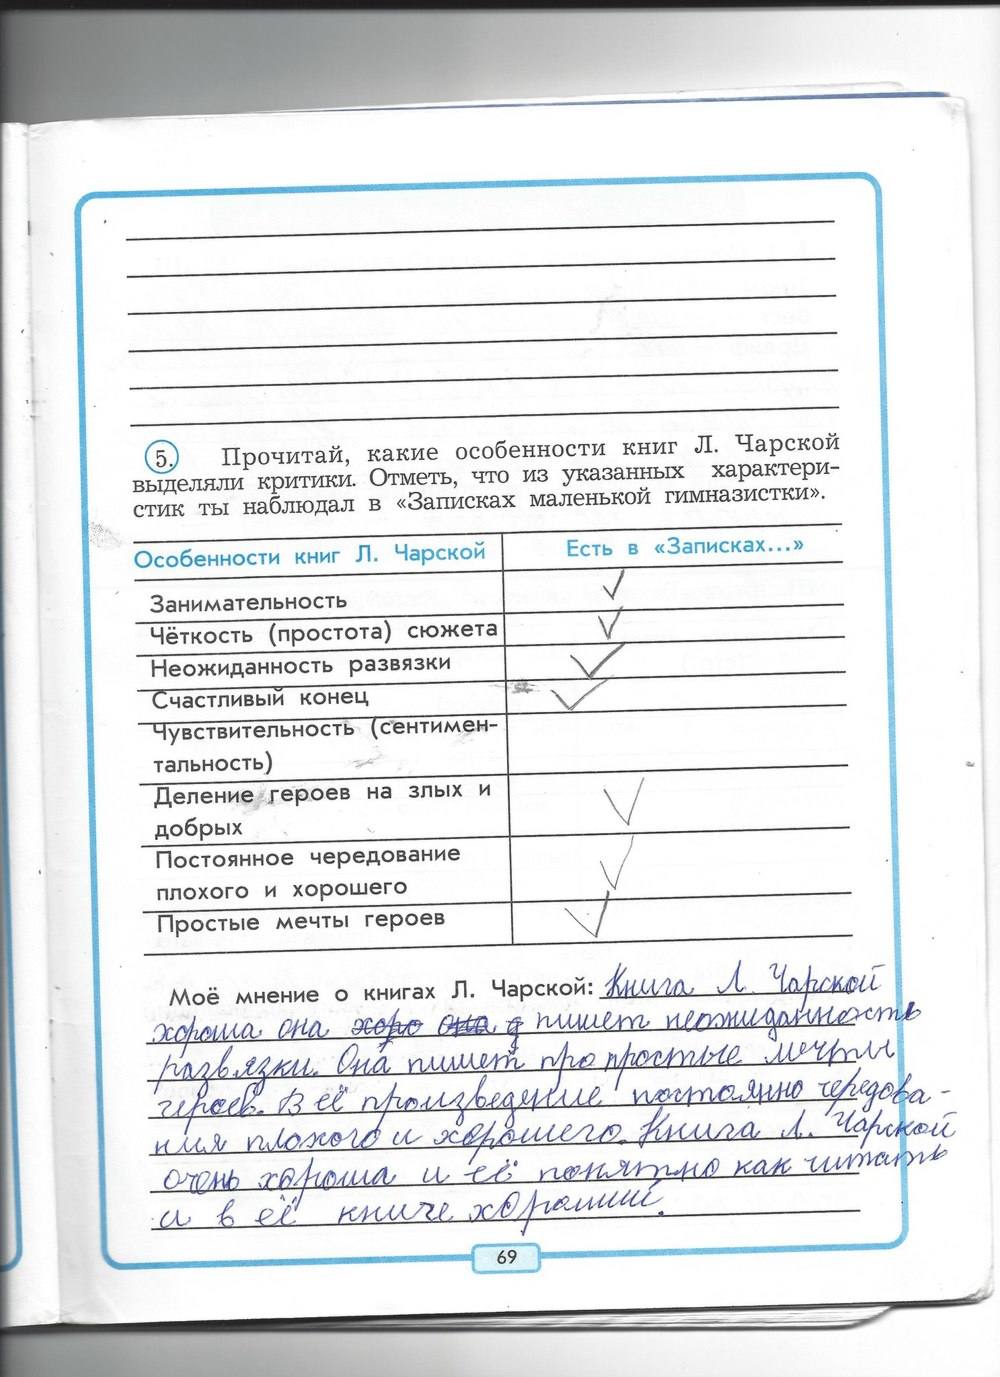 5. Прочитай, какие особенности книг Л. Чарской
выделяли критики. Отметь, что из указанных характери-
стик ты наблюдал в «Записках маленькой гимназистки».
Особенности книг Л. Чарской Есть в «Записках...»
Занимательность
Чёткость (простота) сюжета
Неожиданность развязки
Счастливый конец
Чувствительность (сентимен-
тальность)
Деление героев на злых и
добрых
Постоянное чередование
плохого и хорошего
Простые мечты героев
Моё мнение о книгах Л. Чарской: Книга Л. Чарской
хороша она хоро она пишет неожиданность
развязки. Она пишет про простые мечты
героев. В её произведение постоянно чередова-
ния плохого и хорошего. Книга Л. Чарской
очень хороша и её понятно как читать
и в её книге хороший.
69